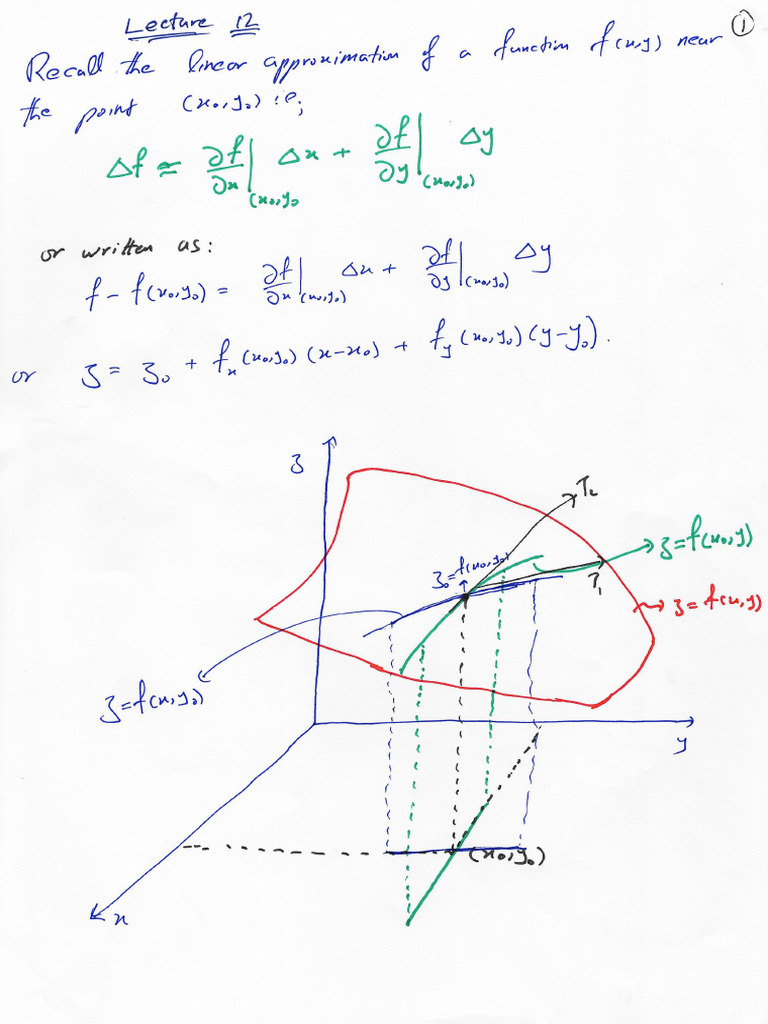 Lecture 12
①
Recall the linear approximation of a function f(x,y) near
the point (x₀,y₀) i.e;
Δf ≃ ∂f/∂x|(x₀,y₀ Δx + ∂f/∂y|(x₀,y₀) Δy
or written as:
f - f(x₀,y₀) = ∂f/∂x|(x₀,y₀) Δx + ∂f/∂y|(x₀,y₀) Δy
or z = z₀ + fₓ(x₀,y₀)(x-x₀) + f_y(x₀,y₀)(y-y₀).
z
T₂
z=f(x₀,y)
z₀=f(x₀,y₀)
T₁
z=f(x,y)
z=f(x,y₀)
y
(x₀,y₀)
x